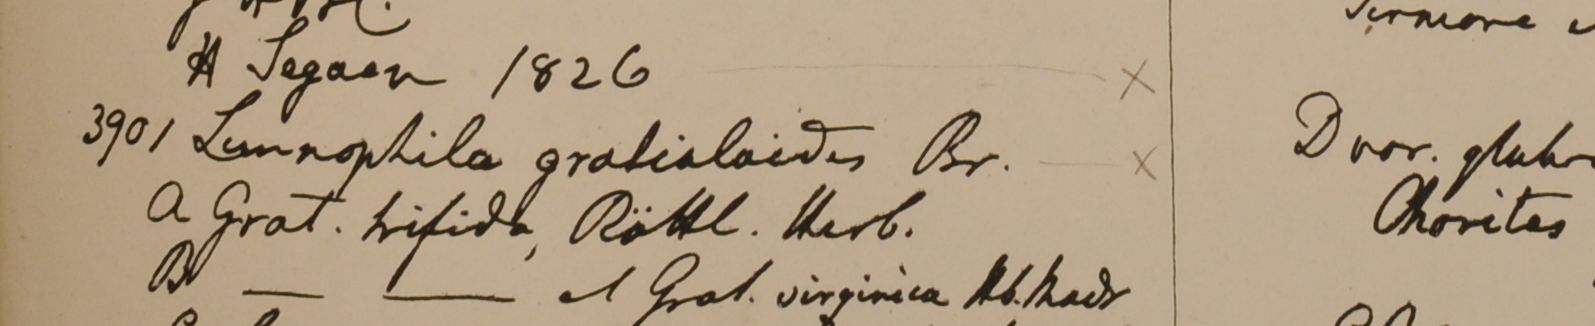 H Segaen 1826
3901 Limnophila gratioloides Br.
A Grat. trifida, Röttl. Herb.
B — — et Grat. virginica Hb. Madr
D var. glabr